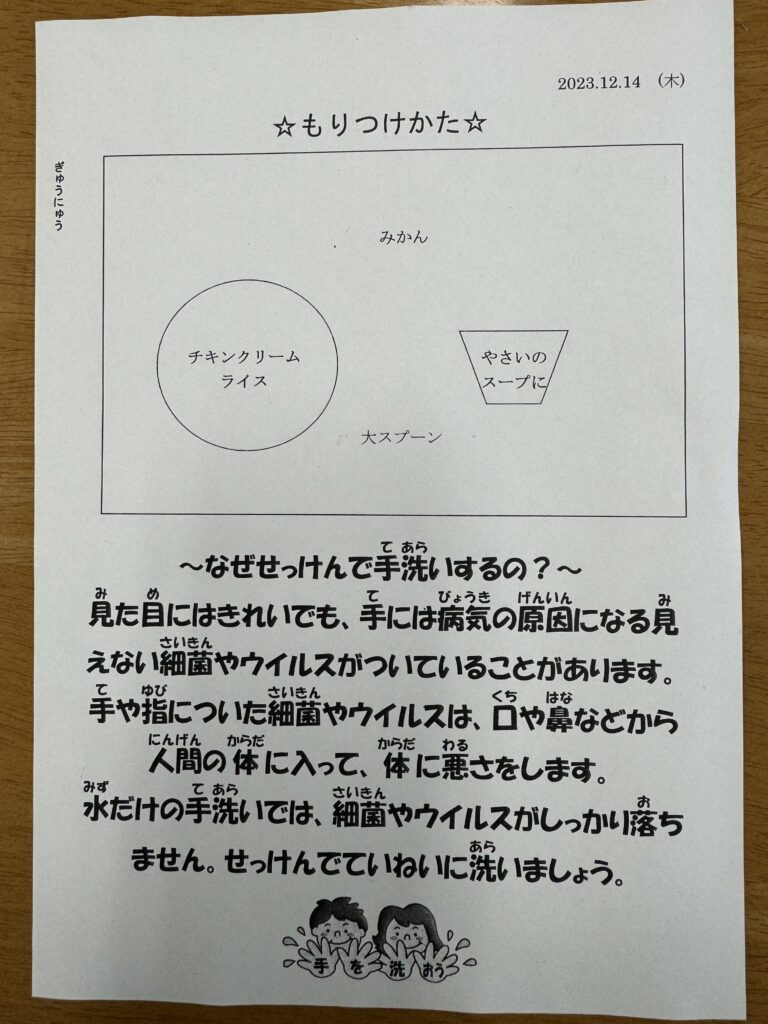 2023.12.14 (木)
☆もりつけかた☆
ぎゅうにゅう
みかん
チキンクリーム
ライス
やさいの
スープに
大スプーン
～なぜせっけんで手洗いするの？～
見た目にはきれいでも、手には病気の原因になる見
えない細菌やウイルスがついていることがあります。
手や指についた細菌やウイルスは、口や鼻などから
人間の体に入って、体に悪さをします。
水だけの手洗いでは、細菌やウイルスがしっかり落ち
ません。せっけんでていねいに洗いましょう。
手を洗おう